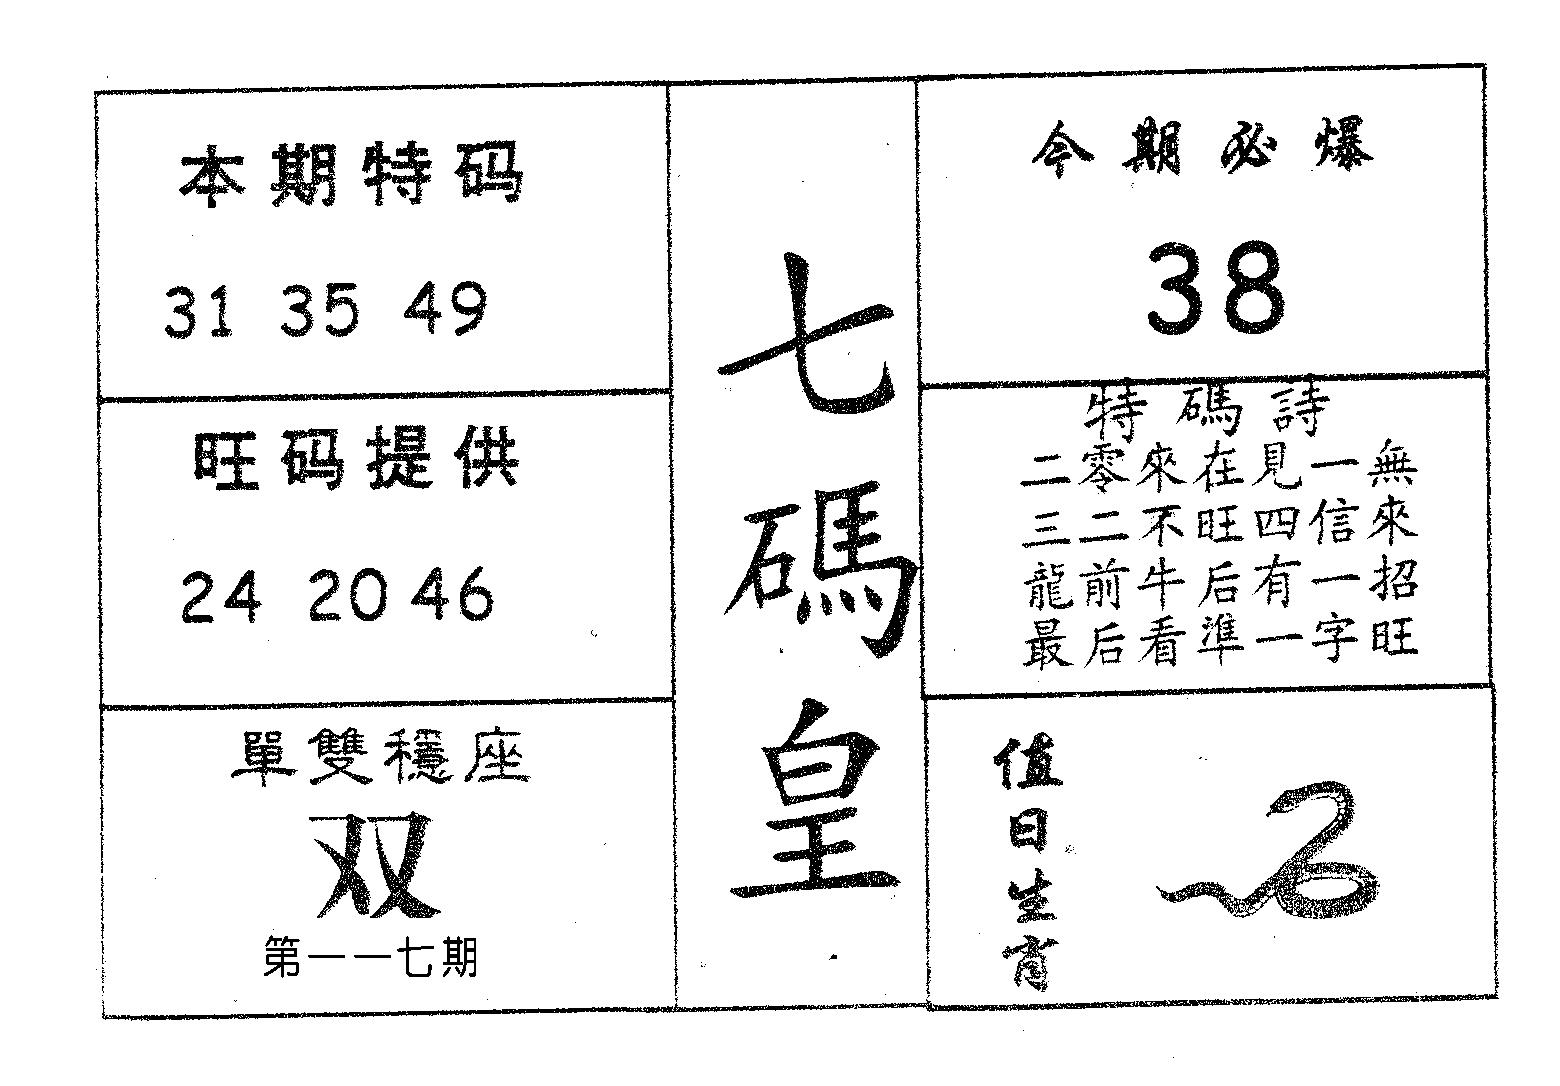 本期特码
31 35 49
旺码提供
24 20 46
單雙穩座
双
第一一七期
七碼皇
今期必爆
38
特碼詩
二零來在見一無
三二不旺四信來
龍前牛后有一招
最后看準一字旺
值日生肖